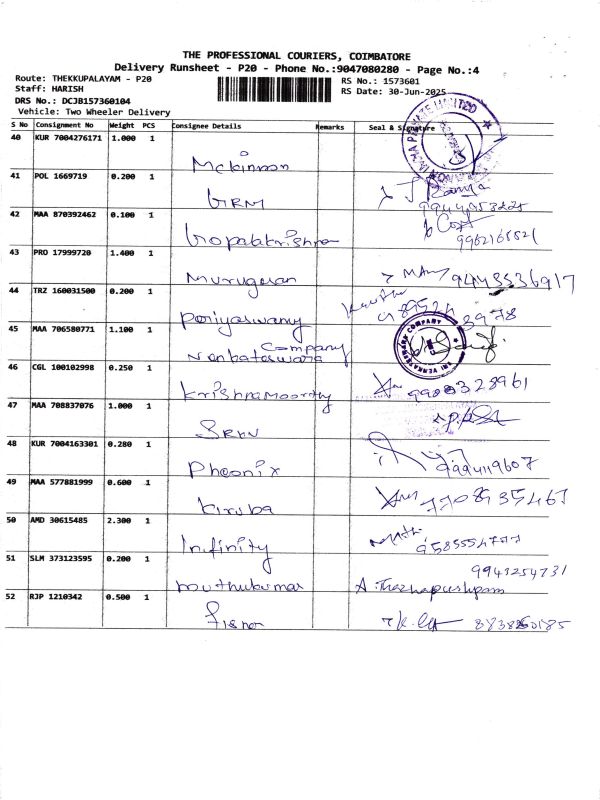 THE PROFESSIONAL COURIERS, COIMBATORE
Delivery Runsheet - P20 - Phone No.:9047080280 - Page No.:4
Route: THEKKUPALAYAM - P20 RS No.: 1573601
Staff: HARISH RS Date: 30-Jun-2025
DRS No.: DCJB157360104
Vehicle: Two Wheeler Delivery
S No Consignment No Weight PCS Consignee Details Remarks Seal & Signature
40 KUR 7004276171 1.000 1
Mckinnon
41 POL 1669719 0.200 1
GRM
42 MAA 870392462 0.100 1
Gopalakrishnan
43 PRO 17999720 1.400 1
Murugesan 9443536917
44 TRZ 160031500 0.200 1
Periyaswamy
45 MAA 706580771 1.100 1
Company
Venkateswara
46 CGL 100102998 0.250 1
Krishnamoorthy
47 MAA 708837076 1.000 1
SRHN
48 KUR 7004163301 0.280 1
Pheonix 9994119607
49 MAA 577881999 0.600 1
Kiruba 7708935467
50 AMD 30615485 2.300 1
Infinity
51 SLM 373123595 0.200 1
9943254731
Muthukumar
52 RJP 1210342 0.500 1
Fisher